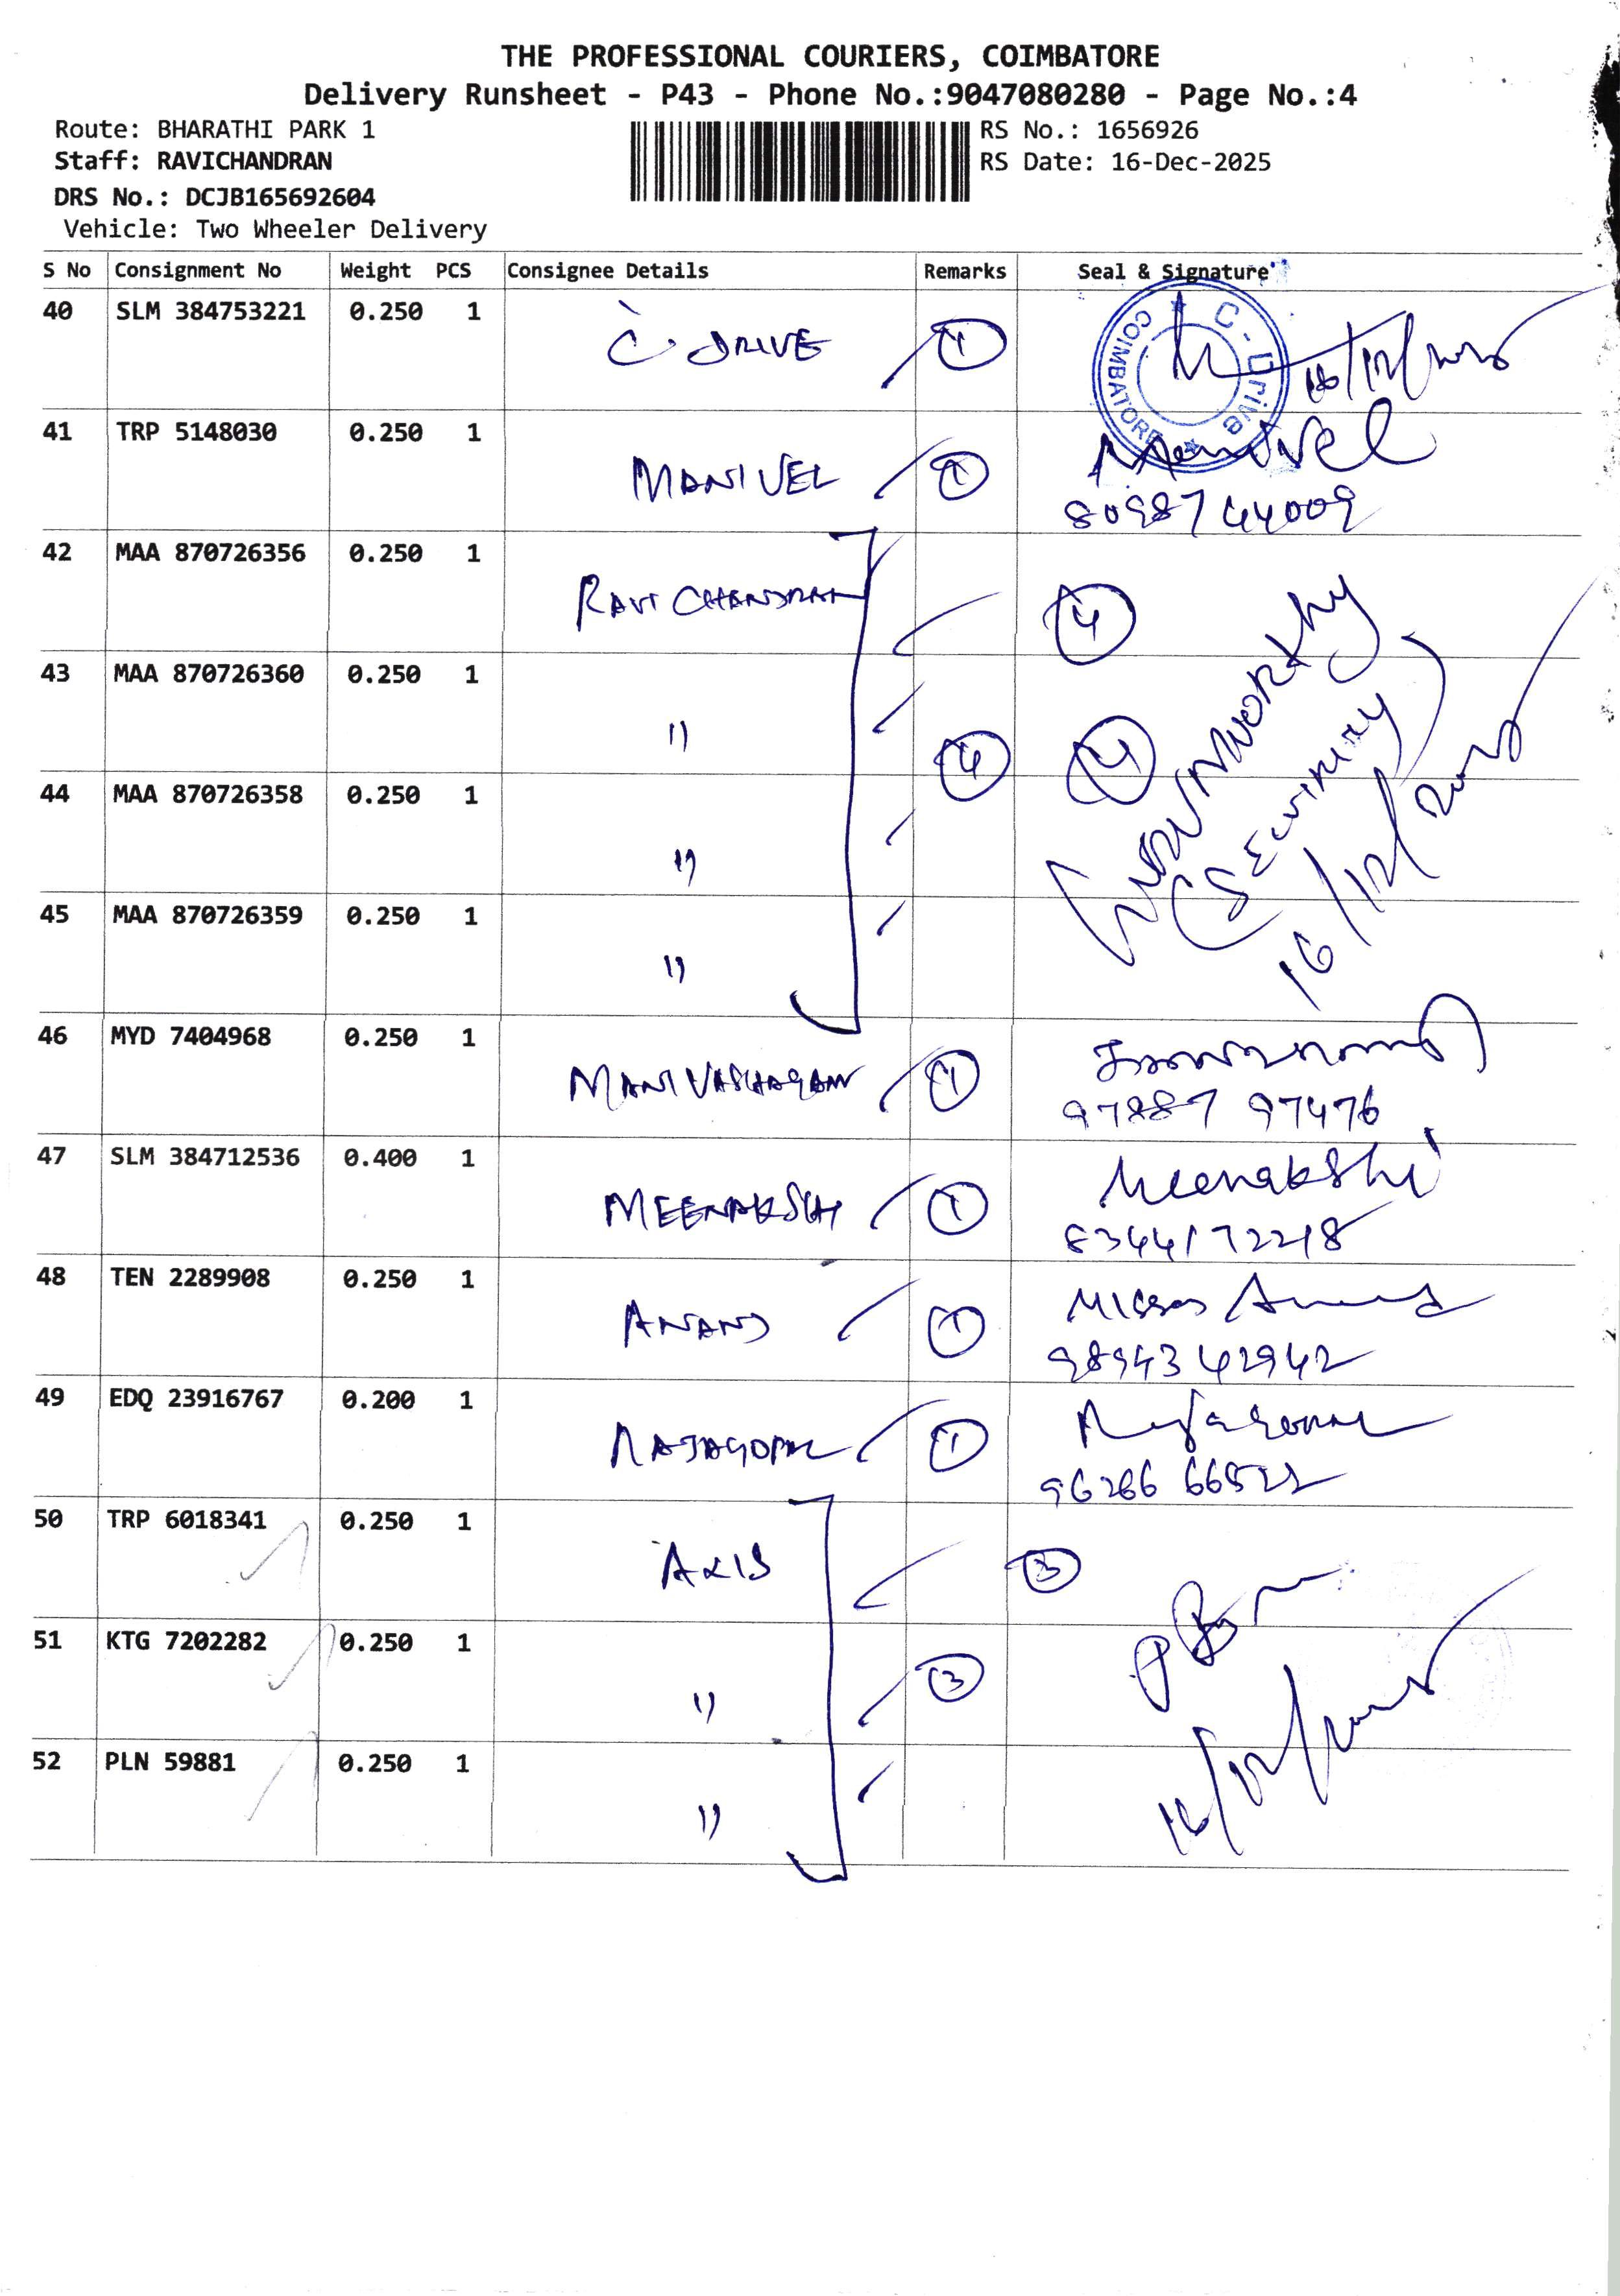 THE PROFESSIONAL COURIERS, COIMBATORE
Delivery Runsheet - P43 - Phone No.:9047080280 - Page No.:4
Route: BHARATHI PARK 1
RS No.: 1656926
Staff: RAVICHANDRAN
RS Date: 16-Dec-2025
DRS No.: DCJB165692604
Vehicle: Two Wheeler Delivery
S No Consignment No Weight PCS Consignee Details Remarks Seal & Signature
40 SLM 384753221 0.250 1 C. DRIVE 1 C-Drive COIMBATORE 16/12/2025
41 TRP 5148030 0.250 1 MANIVEL 1 Manivel
8098744009
42 MAA 870726356 0.250 1 RAVICHANDRAN 4
43 MAA 870726360 0.250 1 11 4 4
44 MAA 870726358 0.250 1 11
(SECURITY)
16/12/2025
45 MAA 870726359 0.250 1 11
46 MYD 7404968 0.250 1 MANIVASHAGAM 1
97887 97476
47 SLM 384712536 0.400 1 MEENAKSHI 1 Meenakshi
8344172218
48 TEN 2289908 0.250 1 ANAND 1 Anand
98943 42942
49 EDQ 23916767 0.200 1 RAJAGOPAL 1 Rajagopal
96266 66522
50 TRP 6018341 0.250 1 AXIS 3
51 KTG 7202282 0.250 1 11 3
52 PLN 59881 0.250 1 11 16/12/2025